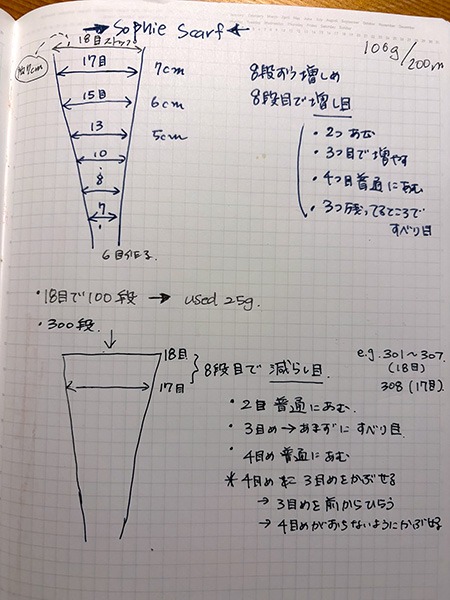 → Sophie Scarf ←
100g/200m
18目ストップ
約7cm
17目 7cm
15目 6cm
13 5cm
10
8
7
6目
8段から増しめ
8段目で増し目
・2つあむ
・3つ目で増やす
・4つ目普通にあむ
・3つ残ってるところで
すべり目
・18目で100段 → used 25g.
・300段.
18目
17目
8段目で減らし目.
e.g. 301～307.
(18目)
308 (17目)
・2目普通にあむ.
・3目め→あまずにすべり目
・4目め普通にあむ
*4目めに3目めをかぶせる
→3目めを前からひろう
→4目めがおちないようにかぶせる